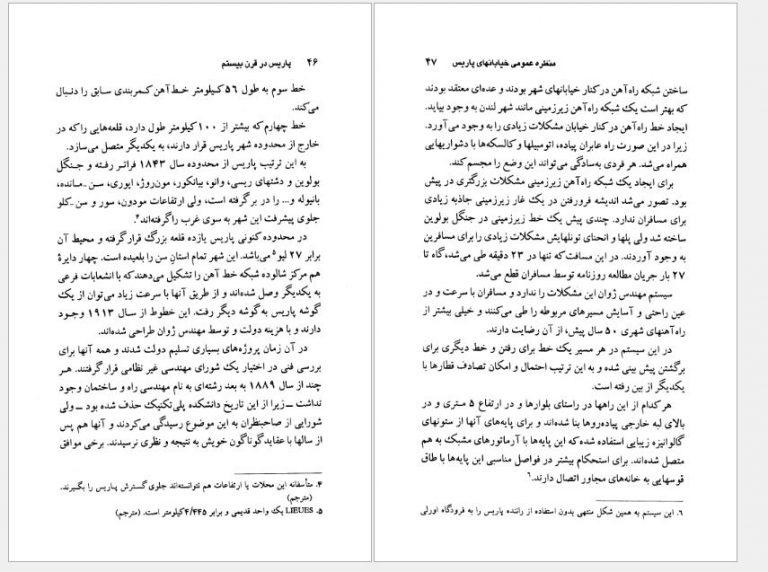 ۴۶ پاریس در قرن بیستم
خط سوم به طول ۵۶ کیلومتر خط آهن کمربندی سابق را دنبال
می‌کند.
خط چهارم که بیشتر از ۱۰۰ کیلومتر طول دارد، قلعه‌هایی را که در
خارج از محدوده شهر پاریس قرار دارند، به یکدیگر متصل می‌سازد.
به این ترتیب پاریس از محدوده سال ۱۸۴۳ فراتر رفته و جنگل
بولوین و دشتهای ریسی، وانو، بیانکور، مون‌روژ، ایوری، سن‌ـ‌مانده،
بانیوله و... را در بر گرفته است، ولی ارتفاعات مودون، سور و سن‌ـ‌کلو
جلوی پیشرفت این شهر به سوی غرب را گرفته‌اند۴.
در محدوده کنونی پاریس یازده قلعه بزرگ قرار گرفته و محیط آن
برابر ۲۷ لیو۵ می‌باشد. این شهر تمام استانِ سن را بلعیده است. چهار دایرهٔ
هم مرکز شالوده شبکه خط آهن را تشکیل می‌دهند که با انشعابات فرعی
به یکدیگر وصل شده‌اند و از طریق آنها با سرعت زیاد می‌توان از یک
گوشه پاریس به گوشه دیگر رفت. این خطوط از سال ۱۹۱۳ وجود
دارند و با هزینه دولت و توسط مهندس ژوان طراحی شده‌اند.
در آن زمان پروژه‌های بسیاری تسلیم دولت شدند و همه آنها برای
بررسی فنی در اختیار یک شورای مهندسی غیر نظامی قرار گرفتند. هر
چند از سال ۱۸۸۹ به بعد رشته‌ای به نام مهندسی راه و ساختمان وجود
نداشت ــ زیرا از این تاریخ دانشکده پلی‌تکنیک حذف شده بود ــ ولی
شورایی از صاحبنظران به این موضوع رسیدگی می‌کردند و آنها هم پس
از سالها با عقاید گوناگون خویش به نتیجه و نظری نرسیدند. برخی موافق
۴. متأسفانه این محلات یا ارتفاعات هم نتوانسته‌اند جلوی گسترش پاریس را بگیرند.
(مترجم)
۵. LIEUES یک واحد قدیمی و برابر ۴/۴۴۵ کیلومتر است. (مترجم)
منظره عمومی خیابانهای پاریس ۴۷
ساختن شبکه راه‌آهن در کنار خیابانهای شهر بودند و عده‌ای معتقد بودند
که بهتر است یک شبکه راه‌آهن زیرزمینی مانند شهر لندن به وجود بیاید.
ایجاد خط راه‌آهن در کنار خیابان مشکلات زیادی را به وجود می‌آورد.
زیرا در این صورت راه عابران پیاده، اتومبیلها و کالسکه‌ها با دشواریهایی
همراه می‌شد. هر فردی به‌سادگی می‌تواند این وضع را مجسم کند.
برای ایجاد یک شبکه راه‌آهن زیرزمینی مشکلات بزرگتری در پیش
بود. تصور می‌شد اندیشه فرورفتن در یک غار زیرزمینی جاذبه زیادی
برای مسافران ندارد. چندی پیش یک خط زیرزمینی در جنگل بولوین
ساخته شد ولی پلها و انحنای تونلهایش مشکلات زیادی را برای مسافرین
به وجود آوردند. در این مسافت که تنها در ۲۳ دقیقه طی می‌شد، گاه تا
۲۷ بار جریان مطالعه روزنامه توسط مسافران قطع می‌شد.
سیستم مهندس ژوان این مشکلات را ندارد و مسافران با سرعت و در
عین راحتی و آسایش مسیرهای مربوطه را طی می‌کنند و خیلی بیشتر از
راه‌آهنهای شهری ۵۰ سال پیش، از آن رضایت دارند.
در این سیستم در هر مسیر یک خط برای رفتن و خط دیگری برای
برگشتن پیش بینی شده و به این ترتیب احتمال و امکان تصادف قطارها با
یکدیگر از بین رفته است.
هر کدام از این راهها در راستای بلوارها و در ارتفاع ۵ متری و در
بالای لبه خارجی پیاده‌روها بنا شده‌اند و برای پایه‌های آنها از ستونهای
گالوانیزه زیبایی استفاده شده که این پایه‌ها با آرماتورهای مشبک به هم
متصل شده‌اند. برای استحکام بیشتر در فواصل مناسبی این پایه‌ها با طاق
قوسهایی به خانه‌های مجاور اتصال دارند.۶
۶. این سیستم به همین شکل منتهی بدون استفاده از راننده پاریس را به فرودگاه اورلی